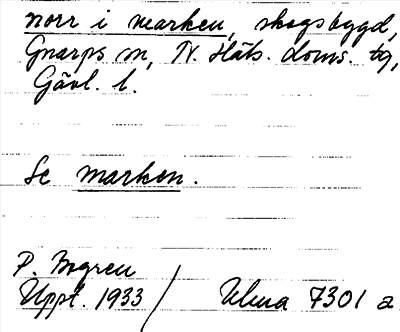 norr i marken, skogsbygd,
Gnarps sn, N. Häls. doms. tg,
Gävl. l.
Se marken.
P. Bogren
Uppt. 1933 / Ulma 7301 a